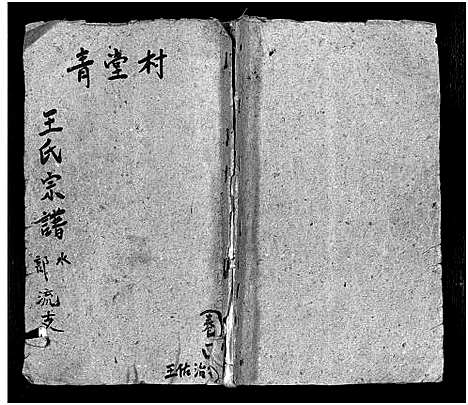 青堂村
王氏宗譜
水部流支
王佑治